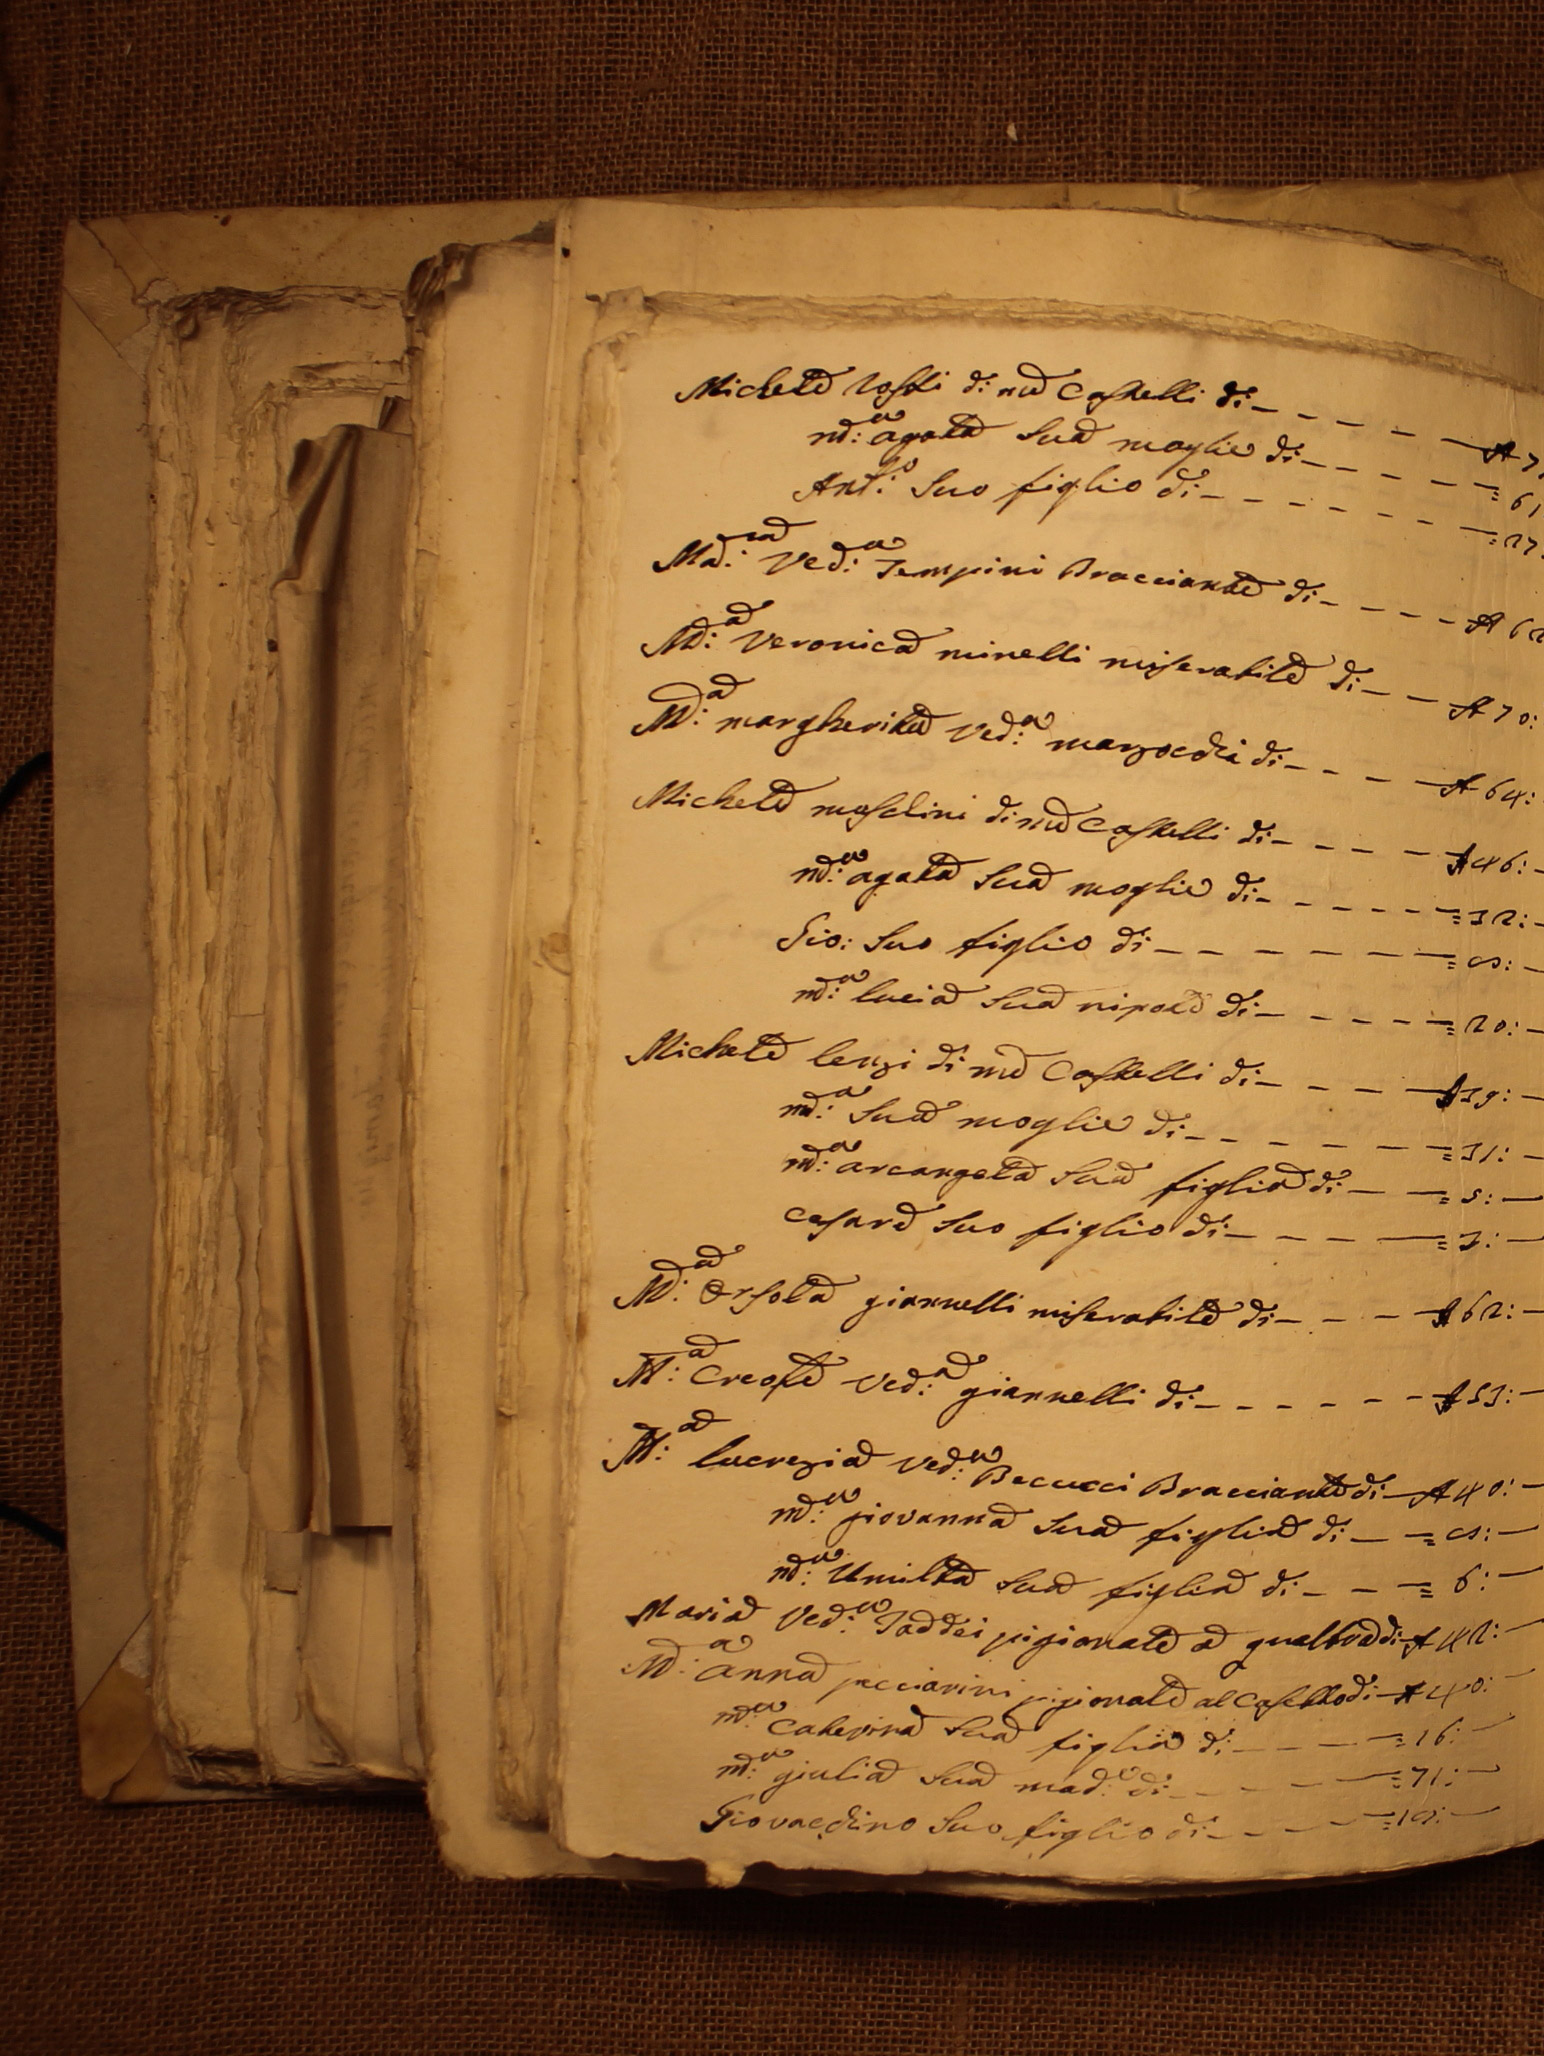 Michele Rossi di md Castelli di – – – – – A 7
md:a agata sua moglie di – – – – = 61
Ant:o suo figlio di – – – – – = 27
Ma:ria Ved:a Tempini Bracciante di – – – – A 62
Md:a Veronica minelli miserabile di – – A 70:
Md:a margherita Ved:a marzocchi di – – – – A 64:
Michele maselini di md Castelli di – – – – A 46: –
md:a agata sua moglie di – – – – = 32: –
Gio: suo figlio di – – – – – = : –
md:a lucia sua nipote di – – – – = 20: –
Michele lenzi di md Castelli di – – – – A 39: –
md:a sua moglie di – – – – – = 31: –
md:a arcangela sua figlia di – – = 5: –
cesare suo figlio di – – – – = 3: –
Md:a Orsola giannelli miserabile di – – – A 62: –
M:a Creofe Ved:a giannelli di – – – – – A 53: –
M:a lucrezia Ved:a Becucci Bracciante di – A 40: –
md:a giovanna sua figlia di – = : –
md:a Umilta sua figlia di – – = 6: –
Maria Ved:a Taddei pigionale a di – A 42: –
Md:a anna pecciarini pigionale al Casetto di – A 40: –
md:a Caterina sua figlia di – – – = 16: –
md:a giulia sua mad:e di – – – = 71: –
Giovacchino suo figlio di – – – = : –